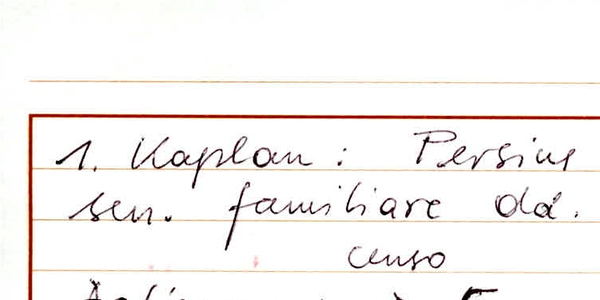 1. Kaplan: Persius
sen. familiare dd.
censo